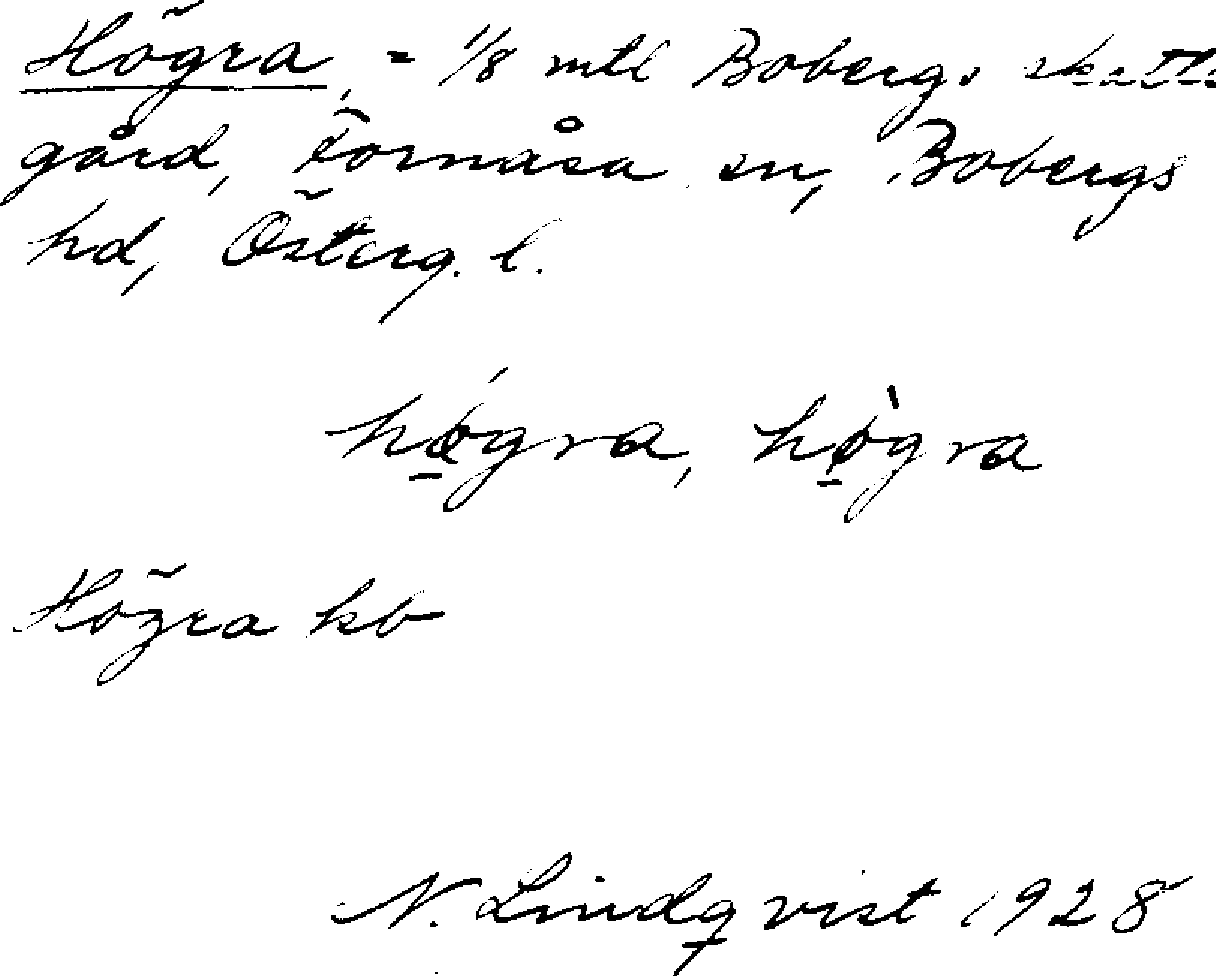 Högra, = 1/8 mtl Bobergs skatte
gård, Fornåsa sn, Bobergs
hd, Österg. l.
hǿ̠gra, hø̠̀gra
Högra kb
N. Lindqvist 1928